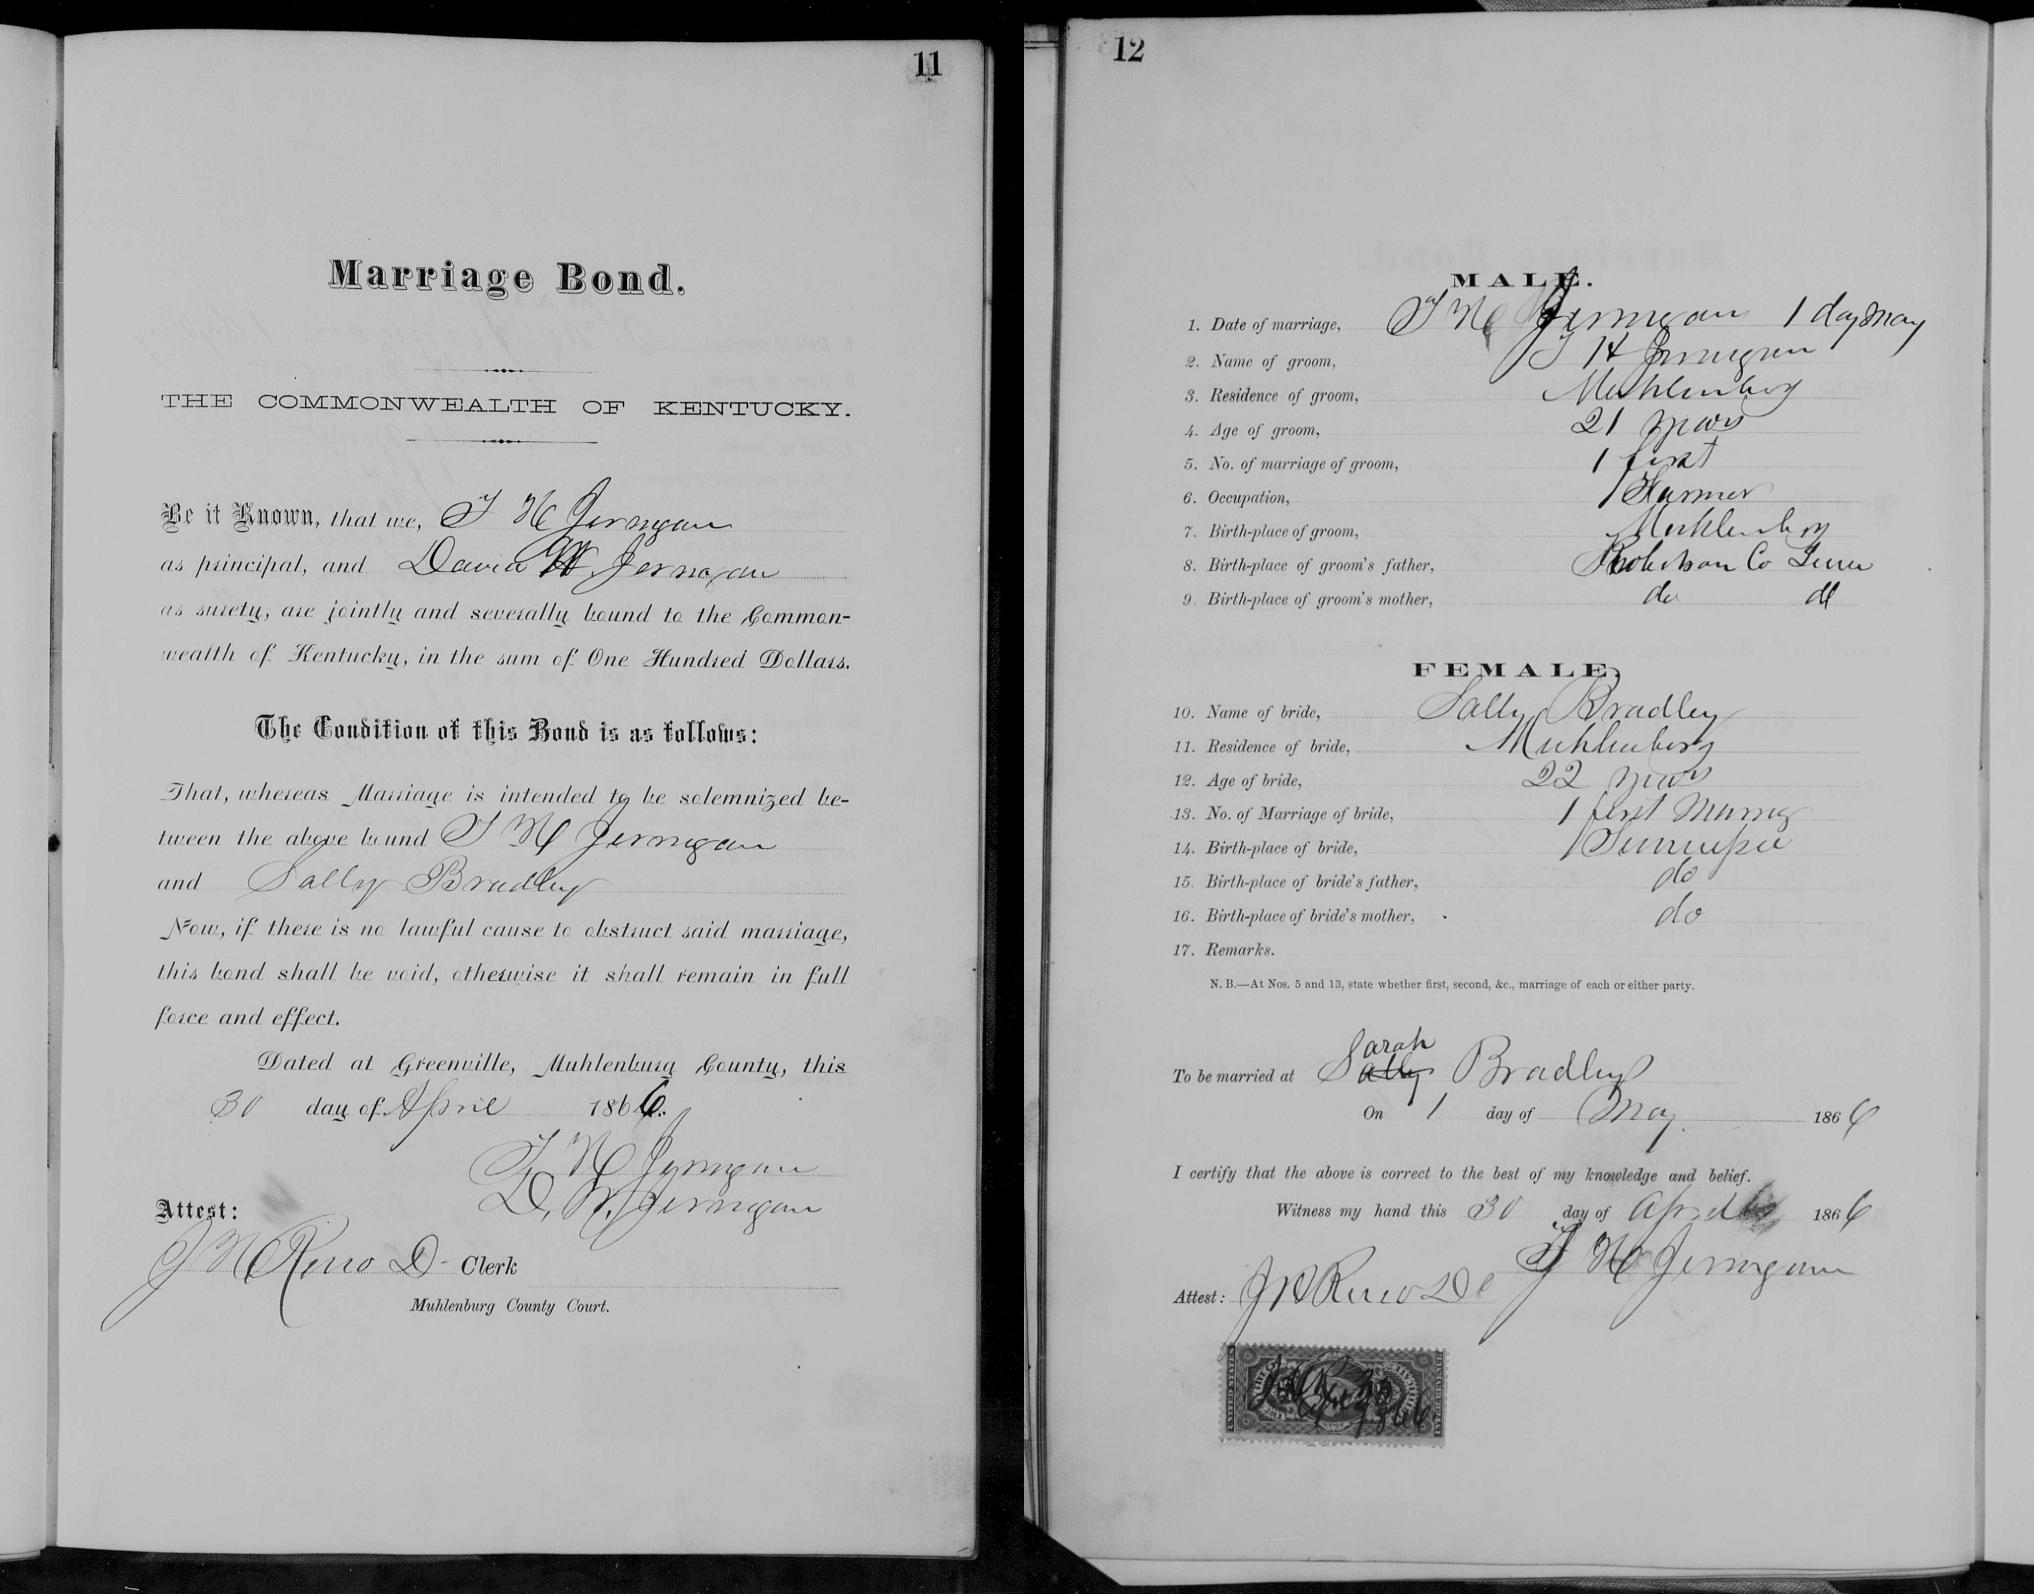 11
Marriage Bond.
THE COMMONWEALTH OF KENTUCKY.
Be it Known, that we, T H Jernigan
as principal, and David W Jernagan
as surety, are jointly and severally bound to the Common-
wealth of Kentucky, in the sum of One Hundred Dollars.
The Condition of this Bond is as follows:
That, whereas Marriage is intended to be solemnized be-
tween the above bound T H Jernigan
and Sally Bradley
Now, if there is no lawful cause to obstruct said marriage,
this bond shall be void, otherwise it shall remain in full
force and effect.
Dated at Greenville, Muhlenburg County, this
30 day of April 1866.
T H Jernigan
D. W. Jernigan
Attest:
J W Reno D Clerk
Muhlenburg County Court.
12
MALE.
1. Date of marriage, T H Jernigan 1 day May
2. Name of groom, T H Jernigan
3. Residence of groom, Muhlenberg
4. Age of groom, 21 years
5. No. of marriage of groom, 1 first
6. Occupation, Farmer
7. Birth-place of groom, Muhlenberg
8. Birth-place of groom's father, Robertson Co Tenn
9. Birth-place of groom's mother, do do
FEMALE.
10. Name of bride, Sally Bradley
11. Residence of bride, Muhlenberg
12. Age of bride, 22 years
13. No. of Marriage of bride, 1 first Marrig
14. Birth-place of bride, Tennessee
15. Birth-place of bride's father, do
16. Birth-place of bride's mother, do
17. Remarks.
N. B.—At Nos. 5 and 13, state whether first, second, &c., marriage of each or either party.
Sarah
To be married at Sally Bradley
On 1 day of May 1866
I certify that the above is correct to the best of my knowledge and belief.
Witness my hand this 30 day of April 1866
T H Jernigan
Attest: J W Reno D C
1866